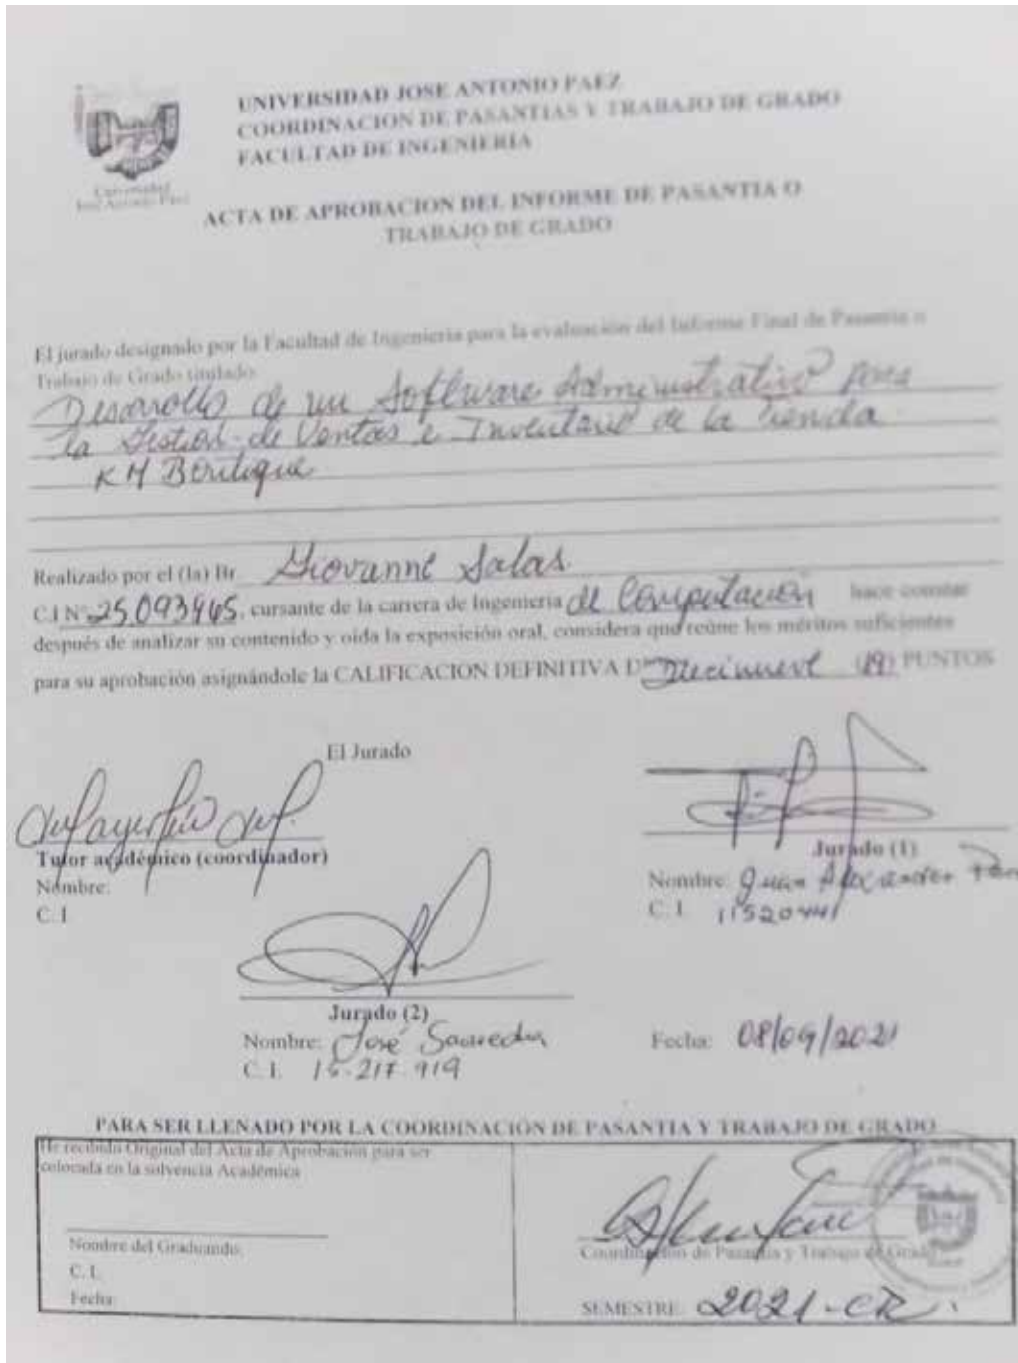 UNIVERSIDAD JOSE ANTONIO PAEZ
COORDINACION DE PASANTIAS Y TRABAJO DE GRADO
FACULTAD DE INGENIERIA
Universidad
José Antonio Páez
ACTA DE APROBACION DEL INFORME DE PASANTIA O
TRABAJO DE GRADO
El jurado designado por la Facultad de Ingeniería para la evaluación del Informe Final de Pasantía o
Trabajo de Grado titulado
Desarrollo de un Software Administrativo para
la Gestión de Ventas e Inventario de la tienda
KM Boutique
Realizado por el (la) Br Giovanne Salas
C.I Nº 25.093945, cursante de la carrera de Ingeniería de Computación hace constar
después de analizar su contenido y oída la exposición oral, considera que reúne los méritos suficientes
para su aprobación asignándole la CALIFICACION DEFINITIVA DE Diecinueve (19) PUNTOS
El Jurado
Tutor académico (coordinador)
Nombre:
C. I
Jurado (1)
Nombre: Juan Alexander
C. I. 11520441
Jurado (2)
Nombre: José Saavedra
C. I. 15.217.919
Fecha: 08/09/2021
PARA SER LLENADO POR LA COORDINACIÓN DE PASANTIA Y TRABAJO DE GRADO
He recibido Original del Acta de Aprobación para ser
colocada en la solvencia Académica
Nombre del Graduando:
C. I.
Fecha:
Coordinación de Pasantía y Trabajo de Grado
SEMESTRE: 2021-CR